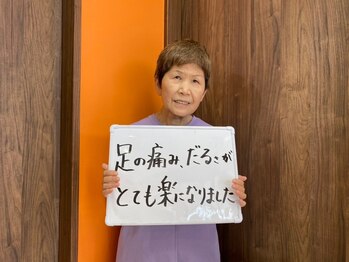 足の痛み、だるさが
とても楽になりました